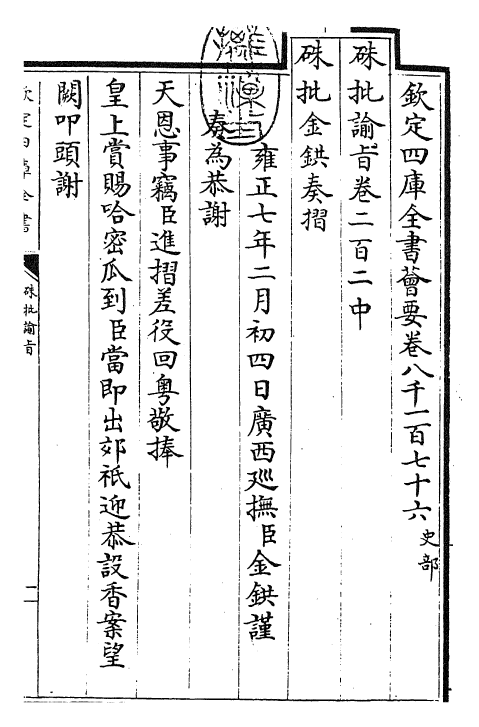 欽定四庫全書薈要卷八千一百七十六 史部
硃批諭旨卷二百二中
硃批金鉷奏摺
雍正七年二月初四日廣西廵撫臣金鉷謹
奏為恭謝
天恩事竊臣進摺差役回粵敬捧
皇上賞賜哈密瓜到臣當即出郊祗迎恭設香案望
闕叩頭謝
欽定四庫全書
硃批諭旨